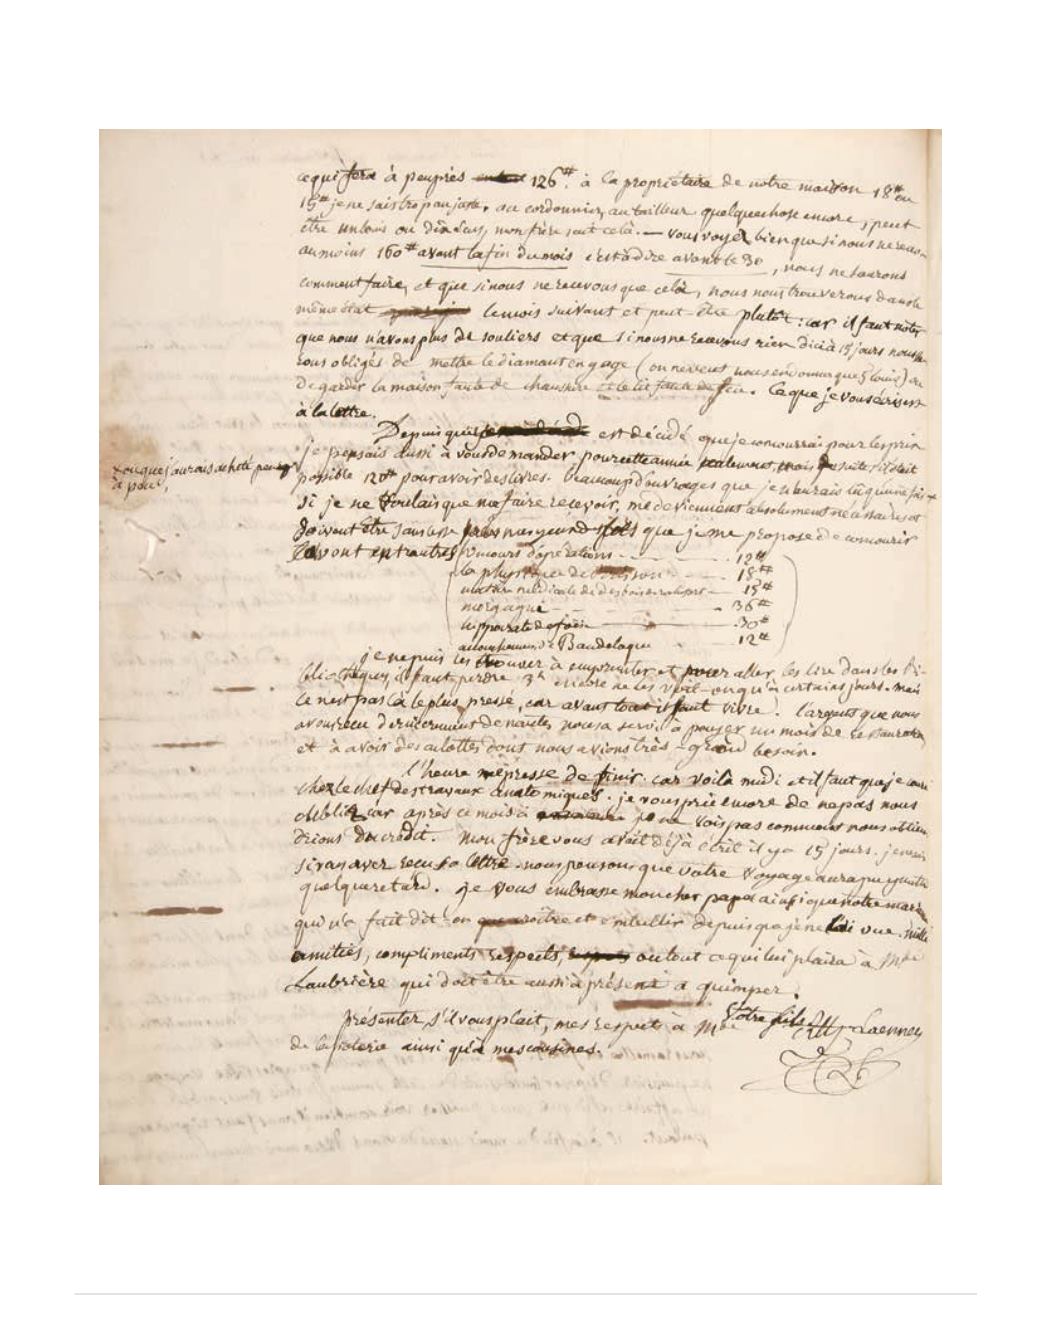 ce qui fera à peu près 126# à la propriétaire de notre maison 18# ou
15# je ne sais trop au juste. au cordonnier, au tailleur quelque chose encore, peut
être un louis ou dix, mon frère sait cela. — vous voyez bien que si nous ne
au moins 160# avant la fin du mois c'est à dire avant le 30, nous ne saurons
comment faire, et que si nous ne recevons que cela, nous nous trouverons dans le
même état le mois suivant et peut-être plutôt : car il faut noter
que nous n'avons plus de souliers et que si nous ne recevons rien d'ici à 15 jours nous
obligés de mettre le diamant en gage (on ne veut nous en donner que 5 louis) ou
de garder la maison faute de chaussure et le lit faute de feu. Ce que je vous écris est
à la lettre.
Depuis qu'il est décidé que je concourrai pour les prix
je pensais aussi à vous demander pour cette année
xou que j'aurais acheté
à peu,
possible 120# pour avoir des livres. beaucoup d'ouvrages que je n'aurais lu qu'une fois
si je ne voulais que me faire recevoir, me deviennent absolument nécessaires et
doivent être sans cesse sous mes yeux dès que je me propose de concourir
tels sont entr'autres un cours d'opérations — 12#
la physique de Brisson — 18#
matière médicale de desbois de rochefort — 15#
morgagni — 36#
hippocrate de foës — 30#
accouchemens de Baudeloque — 12#
je ne puis les trouver à emprunter et pour aller les lire dans les bi-
bliothèques, il faut perdre 3h encore ne les voit-on qu'à certains jours. mais
ce n'est pas là le plus pressé, car avant tout il faut vivre. l'argent que nous
avons reçu dernièrement de nantes nous a servi à payer un mois de restaurateur
et à avoir des culottes dont nous avions très-grand besoin.
l'heure me presse de finir. car voilà midi et il faut que je
chez le chef des travaux anatomiques. je vous prie encore de ne pas nous
oublier car après ce mois-ci je ne vois pas comment nous obtien-
drions du crédit. Mon frère vous avait déjà écrit il y a 15 jours.
si vous avez reçu sa lettre. nous pensons que votre voyage aura pu y mettre
quelque retard. je vous embrasse mon cher papa ainsi que notre maman
qui n'a fait dit-on que croître et embellir depuis que je ne l'ai vue. mille
amitiés, compliments respects, ou tout ce qui lui plaira à Mde
Laubrière qui doit être aussi à présent à quimper.
Votre fils Laennec
présenter, s'il vous plait, mes respects à Mde
de la poterie ainsi qu'à mes cousines.